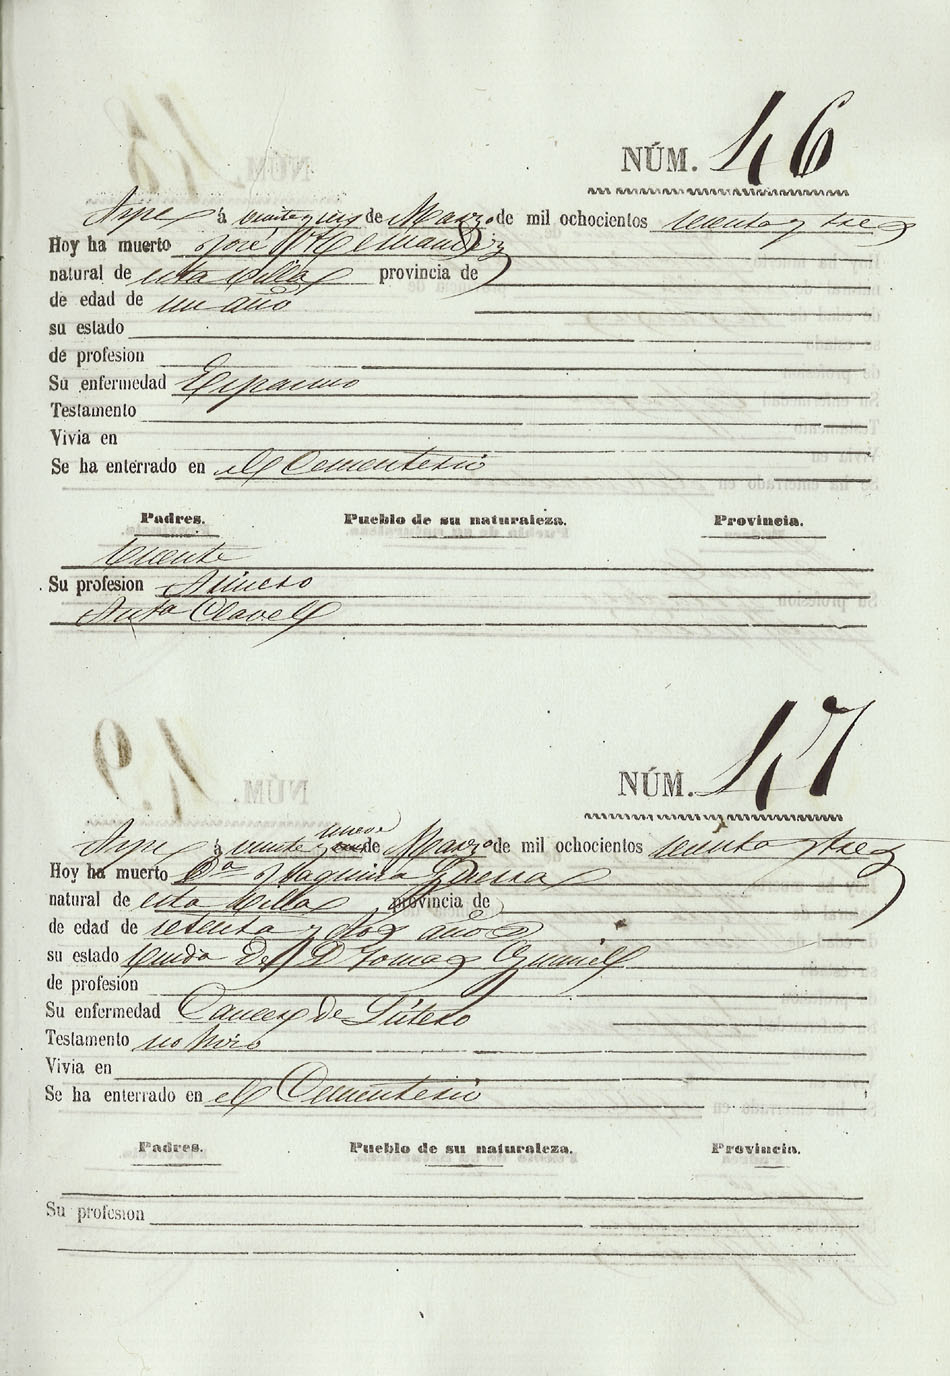 NÚM. 46
Aspe á veinte y seis de Marzo de mil ochocientos sesenta y tres
Hoy ha muerto José Hernandez
natural de esta Villa provincia de
de edad de un año
su estado
de profesion
Su enfermedad Espasmo
Testamento
Vivia en
Se ha enterrado en el Cementerio
Padres. Pueblo de su naturaleza. Provincia.
Vicente
Su profesion
Anta Clavel
NÚM. 47
Aspe á veinte y nueve de Marzo de mil ochocientos sesenta y tres
Hoy ha muerto Dª Joaquina Guerra
natural de esta Villa provincia de
de edad de setenta y dos años
su estado Viuda de D Tomas
de profesion
Su enfermedad Cancer de Útero
Testamento no hizo
Vivia en
Se ha enterrado en el Cementerio
Padres. Pueblo de su naturaleza. Provincia.
Su profesion